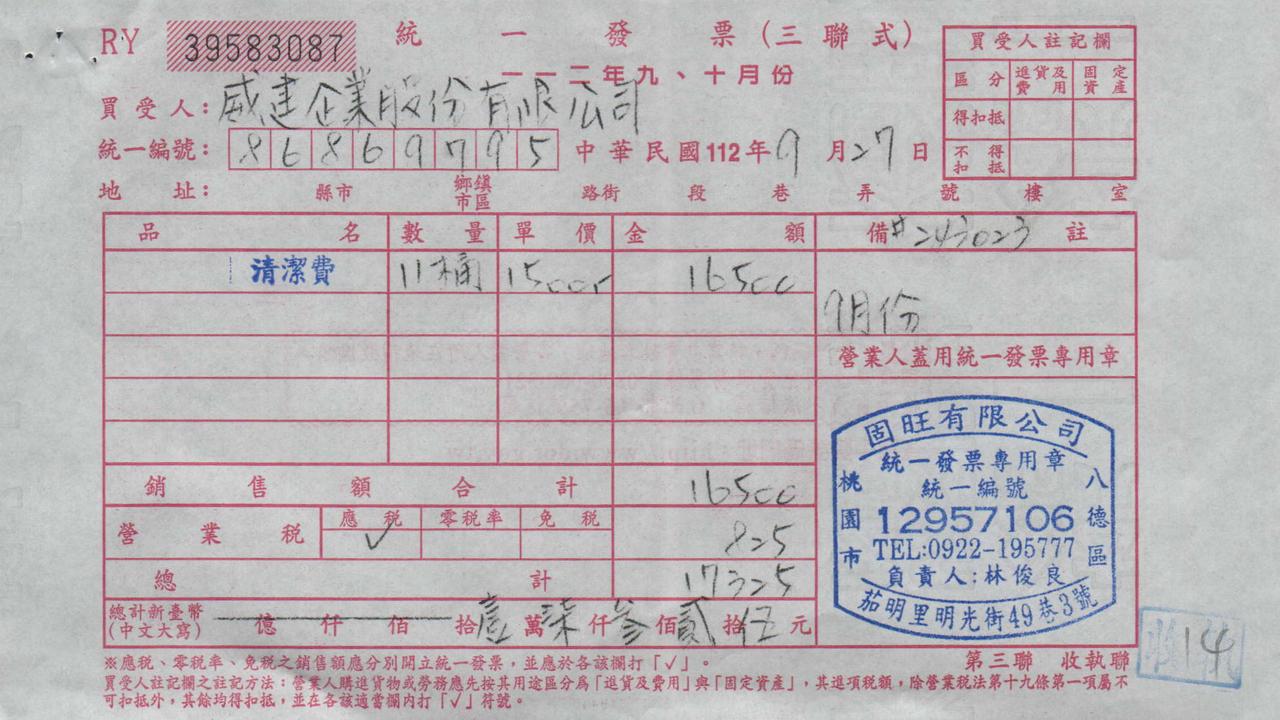 RY 39583087 統一發票(三聯式)
一一二年九、十月份
買受人註記欄
區分 進貨及費用 固定資產
得扣抵
不得扣抵
買受人: 威建企業股份有限公司
統一編號: 86869795 中華民國112年9月27日
地址: 縣市 鄉鎮市區 路街 段 巷 弄 號 樓 室
品名 數量 單價 金額 備註 #243023
清潔費 11桶 1500 16500
9月份
營業人蓋用統一發票專用章
銷售額合計 16500
營業稅 應稅 ✓ 零稅率 免稅 825
總計 17325
總計新臺幣(中文大寫) 億仟佰拾壹萬柒仟參佰貳拾伍元
固旺有限公司
統一發票專用章
統一編號
12957106
TEL:0922-195777
負責人:林俊良
桃園市
八德區
茄明里明光街49巷3號
14
第三聯 收執聯
※應稅、零稅率、免稅之銷售額應分別開立統一發票,並應於各該欄打「√」。
買受人註記欄之註記方法:營業人購進貨物或勞務應先按其用途區分為「進貨及費用」與「固定資產」,其進項稅額,除營業稅法第十九條第一項屬不
可扣抵外,其餘均得扣抵,並在各該適當欄內打「√」符號。